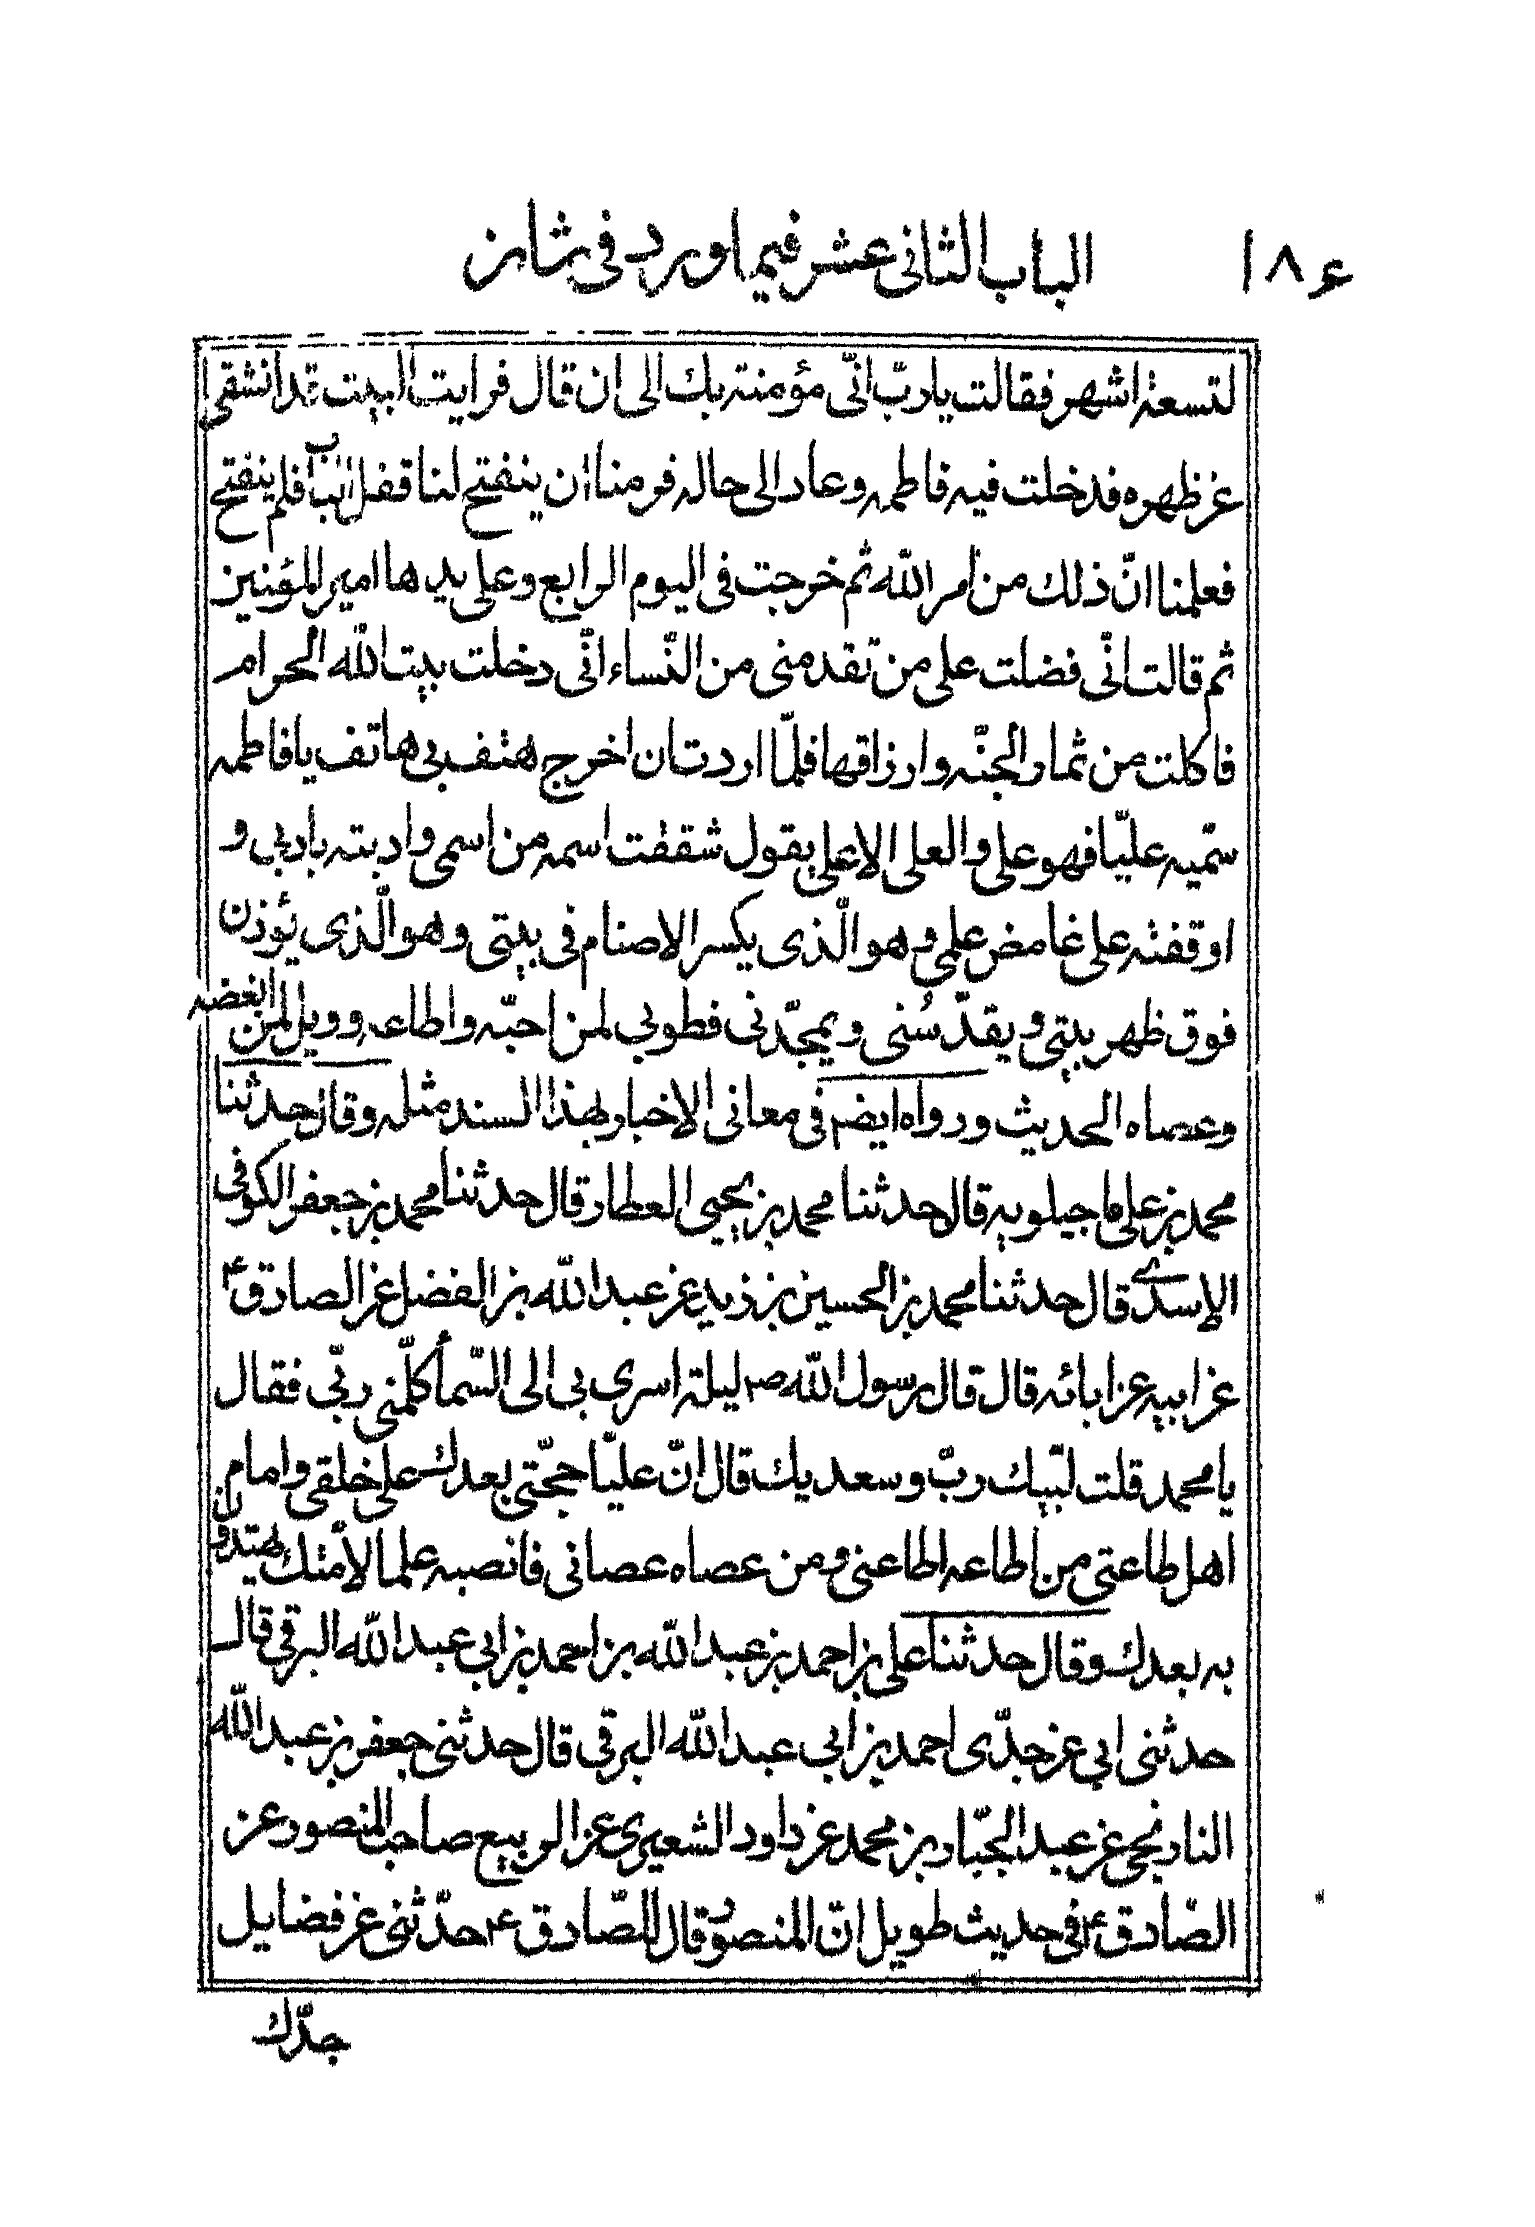 ١٨۶ الباب الثانى عشر فيما ورد فى شان
لتسعة اشهر فقالت يا ربّ انّى مؤمنة بك الى ان قال فرايت البيت قد انشق
عن ظهره فدخلت فيه فاطمه وعاد الى حاله فرمنا ان ينفتح لنا قفل الباب فلم ينفتح
فعلمنا انّ ذلك من امر الله ثم خرجت فى اليوم الرابع وعلى يديها امير المؤمنين
ثم قالت انّى فضلت على من تقدمنى من النّساء انّى دخلت بيت الله الحرام
فاكلت من ثمار الجنّه وارزاقها فلمّا اردت ان اخرج هتف بى هاتف يا فاطمه
سمّيه عليّا فهو على والعلى الاعلى يقول شققت اسمه من اسمى وادبته بادبى و
اوقفته على غامض علمى وهو الّذى يكسر الاصنام فى بيتى وهو الّذى يؤذن
فوق ظهر بيتى ويقدّسنى ويمجّدنى فطوبى لمن احبّه واطاعه وويل لمن ابغضه
وعصاه الحديث ورواه ايضا فى معانى الاخبار بهذا السند مثله وقال حدثنا
محمد بن على ماجيلويه قال حدثنا محمد بن يحيى العطار قال حدثنا محمد بن جعفر الكوفى
الاسدى قال حدثنا محمد بن الحسين بن زيد عن عبد الله بن الفضل عن الصادق ع
عن ابيه عن ابائه قال قال رسول الله ص ليلة اسرى بى الى السّماء كلّمنى ربّى فقال
يا محمد قلت لبّيك ربّ وسعديك قال انّ عليّا حجّتى بعدك على خلقى وامام
اهل طاعتى من اطاعه اطاعنى ومن عصاه عصانى فانصبه علما لامّتك يهتدون
به بعدك وقال حدثنا على بن احمد بن عبد الله بن احمد بن ابى عبد الله البرقى قال
حدثنى ابى عن جدّى احمد بن ابى عبد الله البرقى قال حدثنى جعفر بن عبد الله
النارنجى عن عبد الجبّار بن محمد عن داود الشعيرى عن الربيع صاحب المنصور عن
الصّادق ع فى حديث طويل انّ المنصور قال للصّادق ع حدّثنى عن فضايل
جدّك